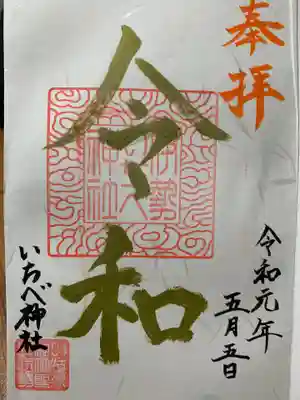 奉拝
令和
令和元年
五月五日
いちべ神社